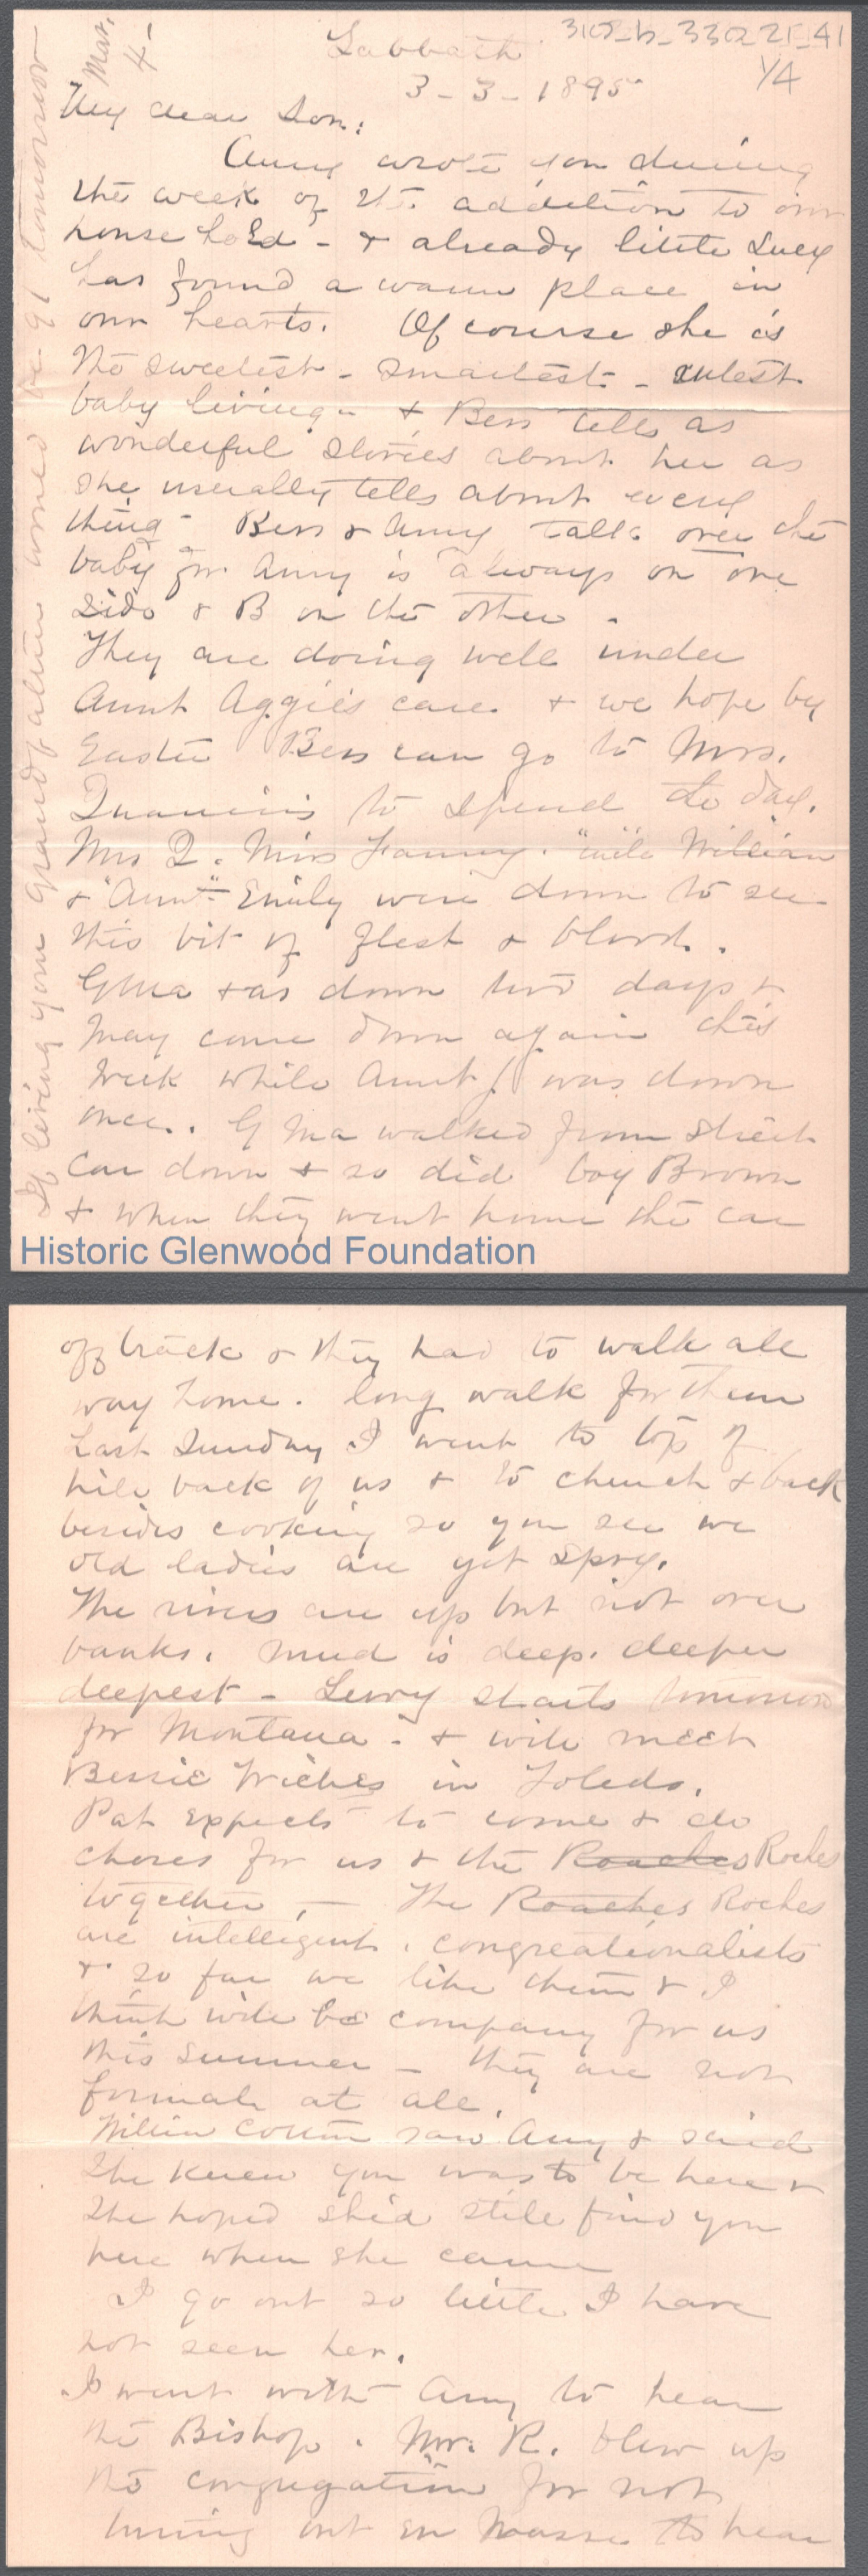 3105_b_330221_41
1/4
Sabbath
3-3-1895
Mar. 4-
My dear Son:
Amy wrote you during
the week of the addition to our
household - & already little Lucy
has found a warm place in
our hearts. Of course she is
the sweetest - smartest - cutest
baby living - & Bess tells as
wonderful stories about her as
she usually tells about every
thing - Bess & Amy talk over the
baby for Amy is always on one
side & B on the other.
They are doing well under
Aunt Aggie's care & we hope by
Easter Bess can go to Mrs.
to spend the day.
Mrs Q. Miss Fanny. "uncle William
& "Aunt" Emily were down to see
this bit of flesh & blood.
GMa was down two days &
may come down again this
week while Aunt J was down
once. G Ma walked from street
car down & so did boy Brown
& when they went home the car
If living your grandfather would be 91 tomorrow
Historic Glenwood Foundation
off track & they had to walk all
way home. long walk for them
Last Sunday I went to top of
hill back of us & to church & back
besides cooking so you see we
old ladies are yet spry.
The rivers are up but not over
banks. Mud is deep. deeper
deepest - Levy starts tomorrow
for Montana - & will meet
Bessie in Toledo.
Pat expects to come & do
chores for us & the Roaches Roches
together, - The Roaches Roches
are intelligent. congreationalists
& so far we like them & I
think will be company for us
this summer - they are not
formal at all.
saw Amy & said
she knew you was to be here &
she hoped she'd still find you
here when she came
I go out so little I have
not seen her.
I went with Amy to hear
the Bishop. Mr. R. blew up
the congregation for not
turning out en masse to hear